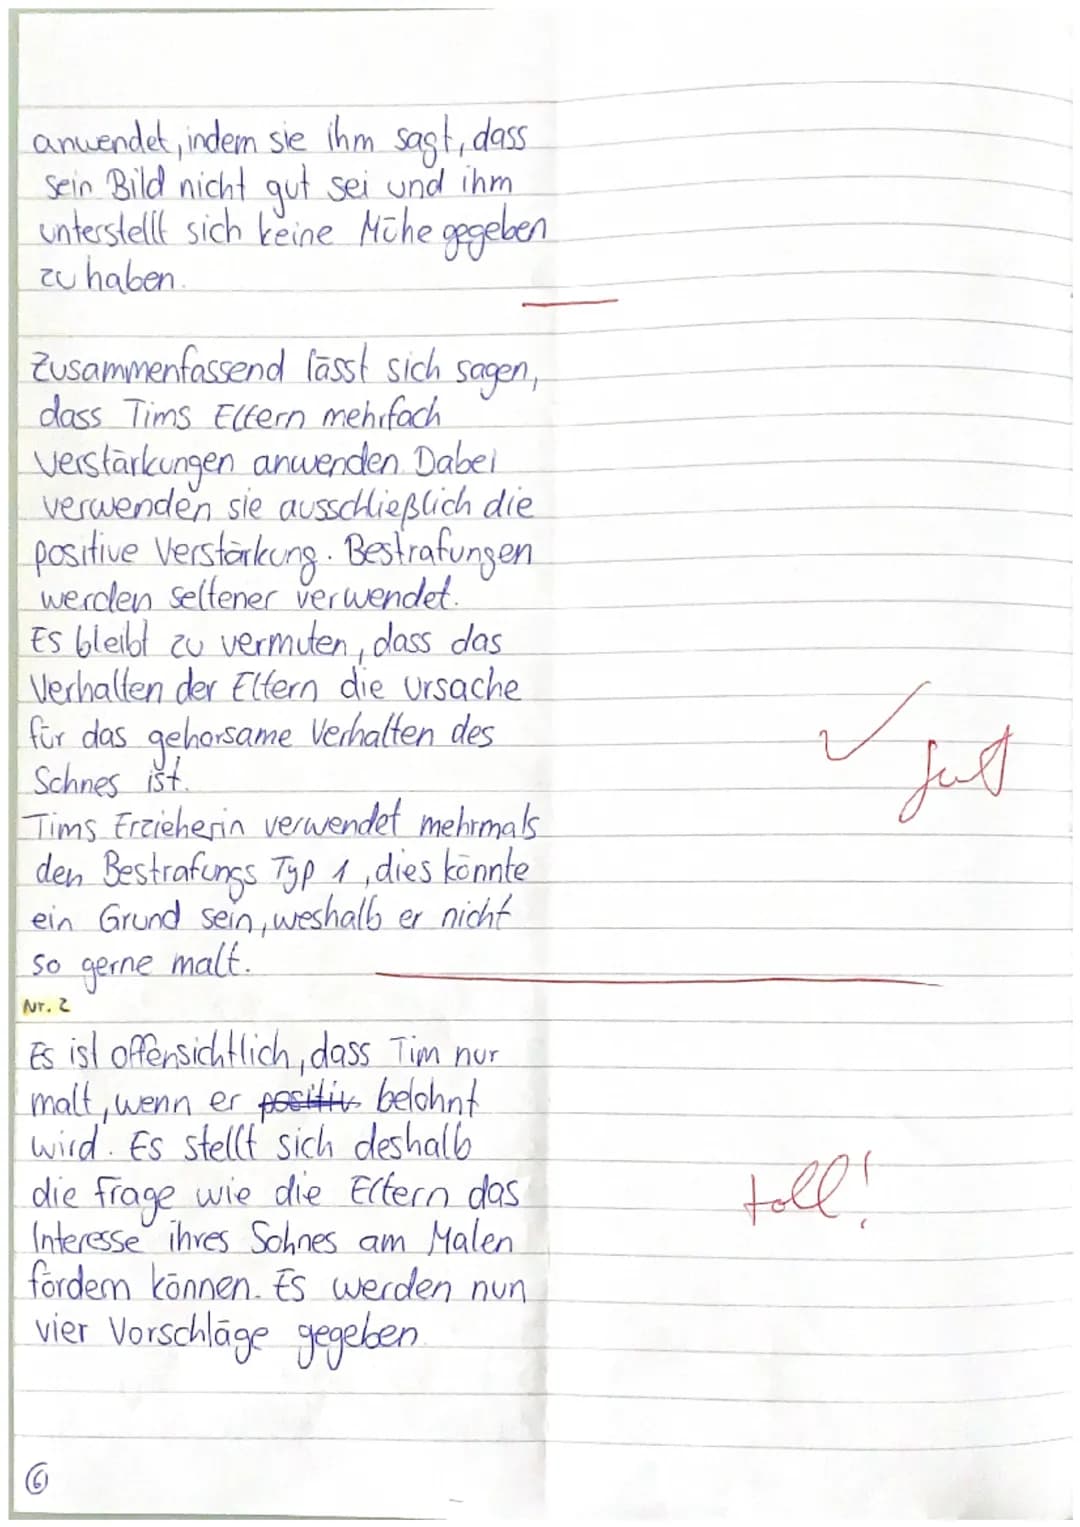 anwendet, indem sie ihm sagt, dass
sein Bild nicht gut sei und ihm
unterstellt sich keine Mühe gegeben
zu haben.
Zusammenfassend lässt sich sagen,
dass Tims Eltern mehrfach
Verstärkungen anwenden. Dabei
verwenden sie ausschließlich die
positive Verstärkung. Bestrafungen
werden seltener verwendet.
Es bleibt zu vermuten, dass das
Verhalten der Eltern die Ursache
für das gehorsame Verhalten des
Sohnes ist.
gut
Tims Erzieherin verwendet mehrmals
den Bestrafungs Typ 1, dies könnte
ein Grund sein, weshalb er nicht
so gerne malt.
Nr. 2
Es ist offensichtlich, dass Tim nur
malt, wenn er positiv belohnt
wird. Es stellt sich deshalb
die Frage wie die Eltern das
toll!
Interesse ihres Sohnes am Malen
fördern können. Es werden nun
vier Vorschläge gegeben.
6